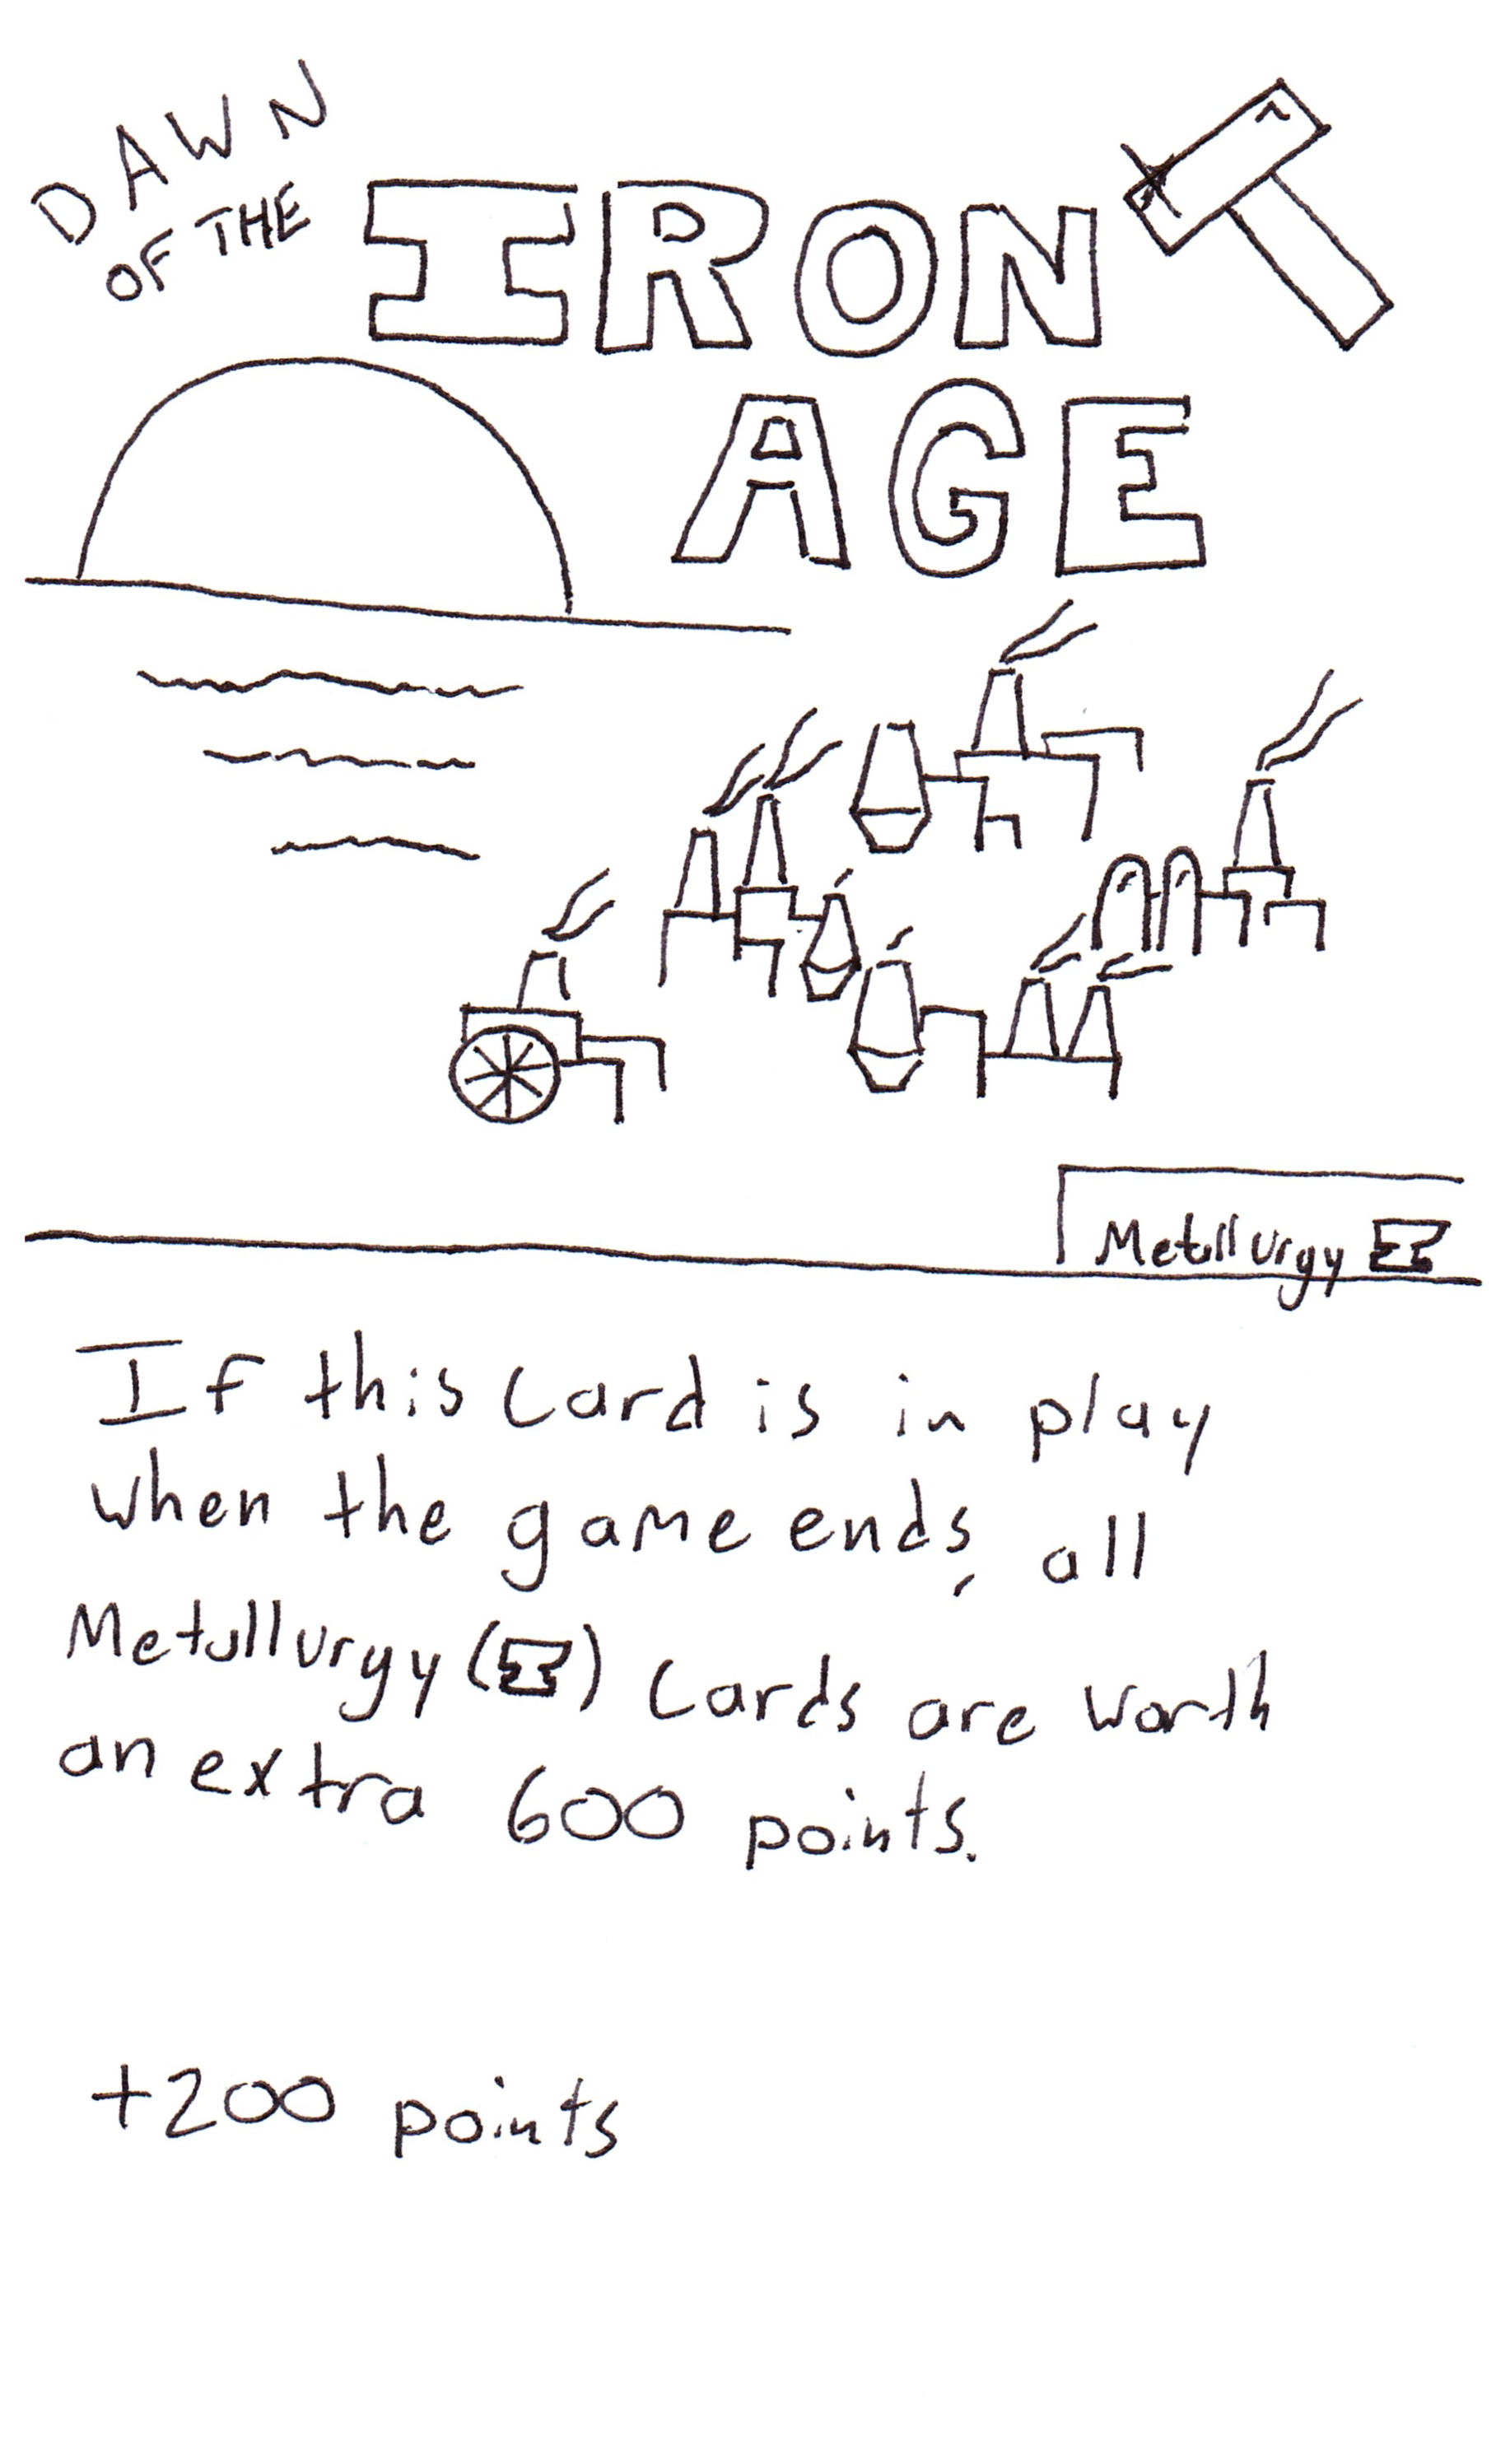 DAWN
OF THE
IRON
AGE
Metallurgy
If this card is in play
when the game ends, all
Metallurgy ( ) cards are worth
an extra 600 points.
+200 points